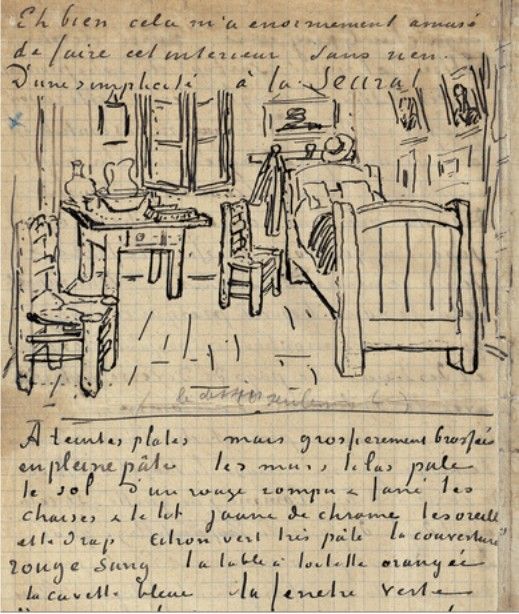 Eh bien cela m'a enormement amusé
de faire cet interieur sans rien.
D'une simplicité à la Seurat
A teintes plates mais grossierement brossées
en pleine pâte les murs lilas pale
le sol d'un rouge rompu & fané les
chaises & le lit jaune de chrome les oreill
et le drap citron vert très pâle la couverture
rouge sang la table à toilette orangée
la cuvette bleue la fenetre verte